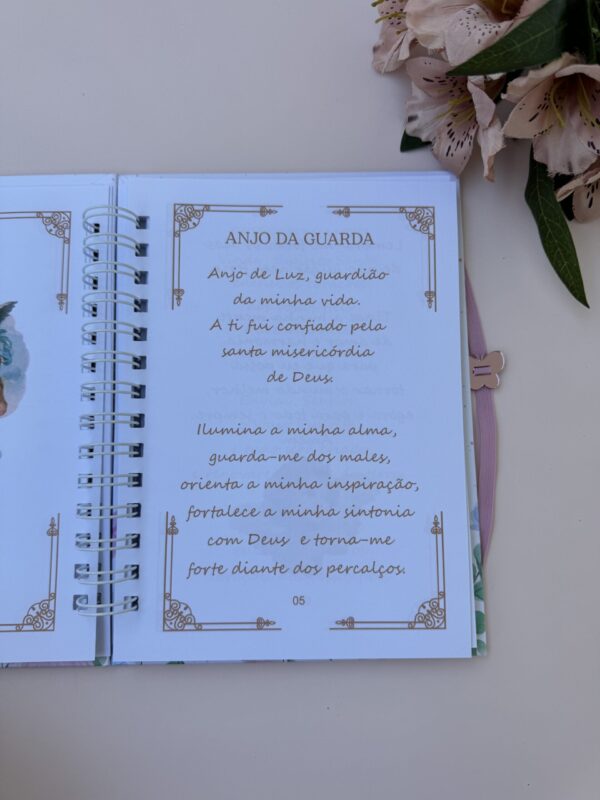 ANJO DA GUARDA
Anjo de Luz, guardião
da minha vida.
A ti fui confiado pela
santa misericórdia
de Deus.
Ilumina a minha alma,
guarda-me dos males,
orienta a minha inspiração,
fortalece a minha sintonia
com Deus e torna-me
forte diante dos percalços.
05